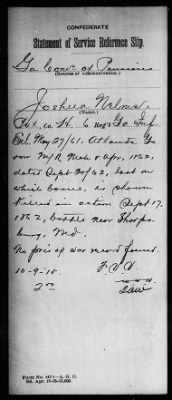 CONFEDERATE
Statement of Service Reference Slip.
Ga Com'r of Pensions
(Source of reference.)
Joshua Nelms.
(Name.)
Pvt, Co. H. 6 Reg't Ga Inf.
Enl. May 27/61. Atlanta, Ga
on M/R Mch & Apr, 1862,
dated Sept 30/62, last on
which borne, is shown
killed in action Sept 17.
1862, battle near Sharps-
burg, Md.
No pris of war record found.
10-9-15. F.S.D.
Form No.